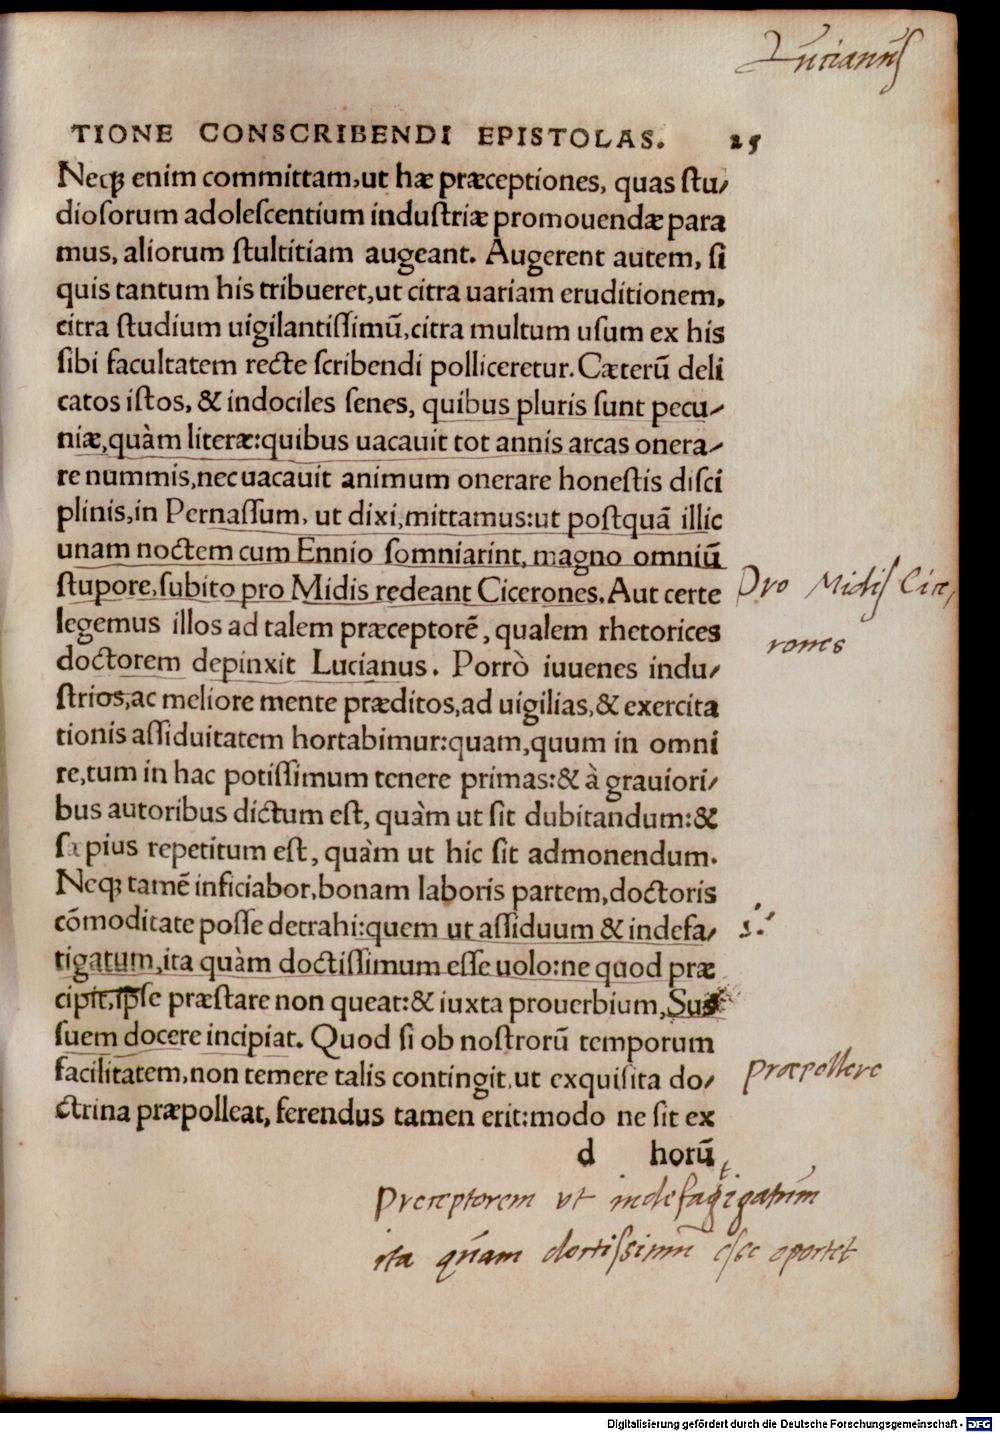 Lucianus
TIONE CONSCRIBENDI EPISTOLAS. 25
Neq; enim committam, ut hæ præceptiones, quas ſtu/
dioſorum adoleſcentium induſtriæ promouendæ para
mus, aliorum ſtultitiam augeant. Augerent autem, ſi
quis tantum his tribueret, ut citra uariam eruditionem,
citra ſtudium uigilantiſſimū, citra multum uſum ex his
ſibi facultatem recte ſcribendi polliceretur. Cæterū deli
catos iſtos, & indociles ſenes, quibus pluris ſunt pecu/
niæ, quàm literæ: quibus uacauit tot annis arcas onera/
re nummis, nec uacauit animum onerare honeſtis diſci
plinis, in Pernaſſum, ut dixi, mittamus: ut poſtquā illic
unam noctem cum Ennio ſomniarint, magno omniū
ſtupore, ſubito pro Midis redeant Cicerones. Aut certe
Pro Midis Cice,
legemus illos ad talem præceptorē, qualem rhetorices
rones
doctorem depinxit Lucianus. Porrò iuuenes indu/
ſtrios, ac meliore mente præditos, ad uigilias, & exercita
tionis aſſiduitatem hortabimur: quam, quum in omni
re, tum in hac potiſſimum tenere primas: & à grauiori/
bus autoribus dictum eſt, quàm ut ſit dubitandum: &
ſæpius repetitum eſt, quàm ut hic ſit admonendum.
Neq; tamē inficiabor, bonam laboris partem, doctoris
cōmoditate poſſe detrahi: quem ut aſſiduum & indefa/
tigatum, ita quàm doctiſſimum eſſe uolo: ne quod præ
cipit, ipſe præſtare non queat: & iuxta prouerbium, Sus
ſuem docere incipiat. Quod ſi ob noſtrorū temporum
facilitatem, non temere talis contingit, ut exquiſita do/
præpollere
ctrina præpolleat, ferendus tamen erit: modo ne ſit ex
d horū
Preceptorem ut indefagigatum
t
ita quam doctiſsimum eſse oportet
Digitalisierung gefördert durch die Deutsche Forschungsgemeinschaft - DFG